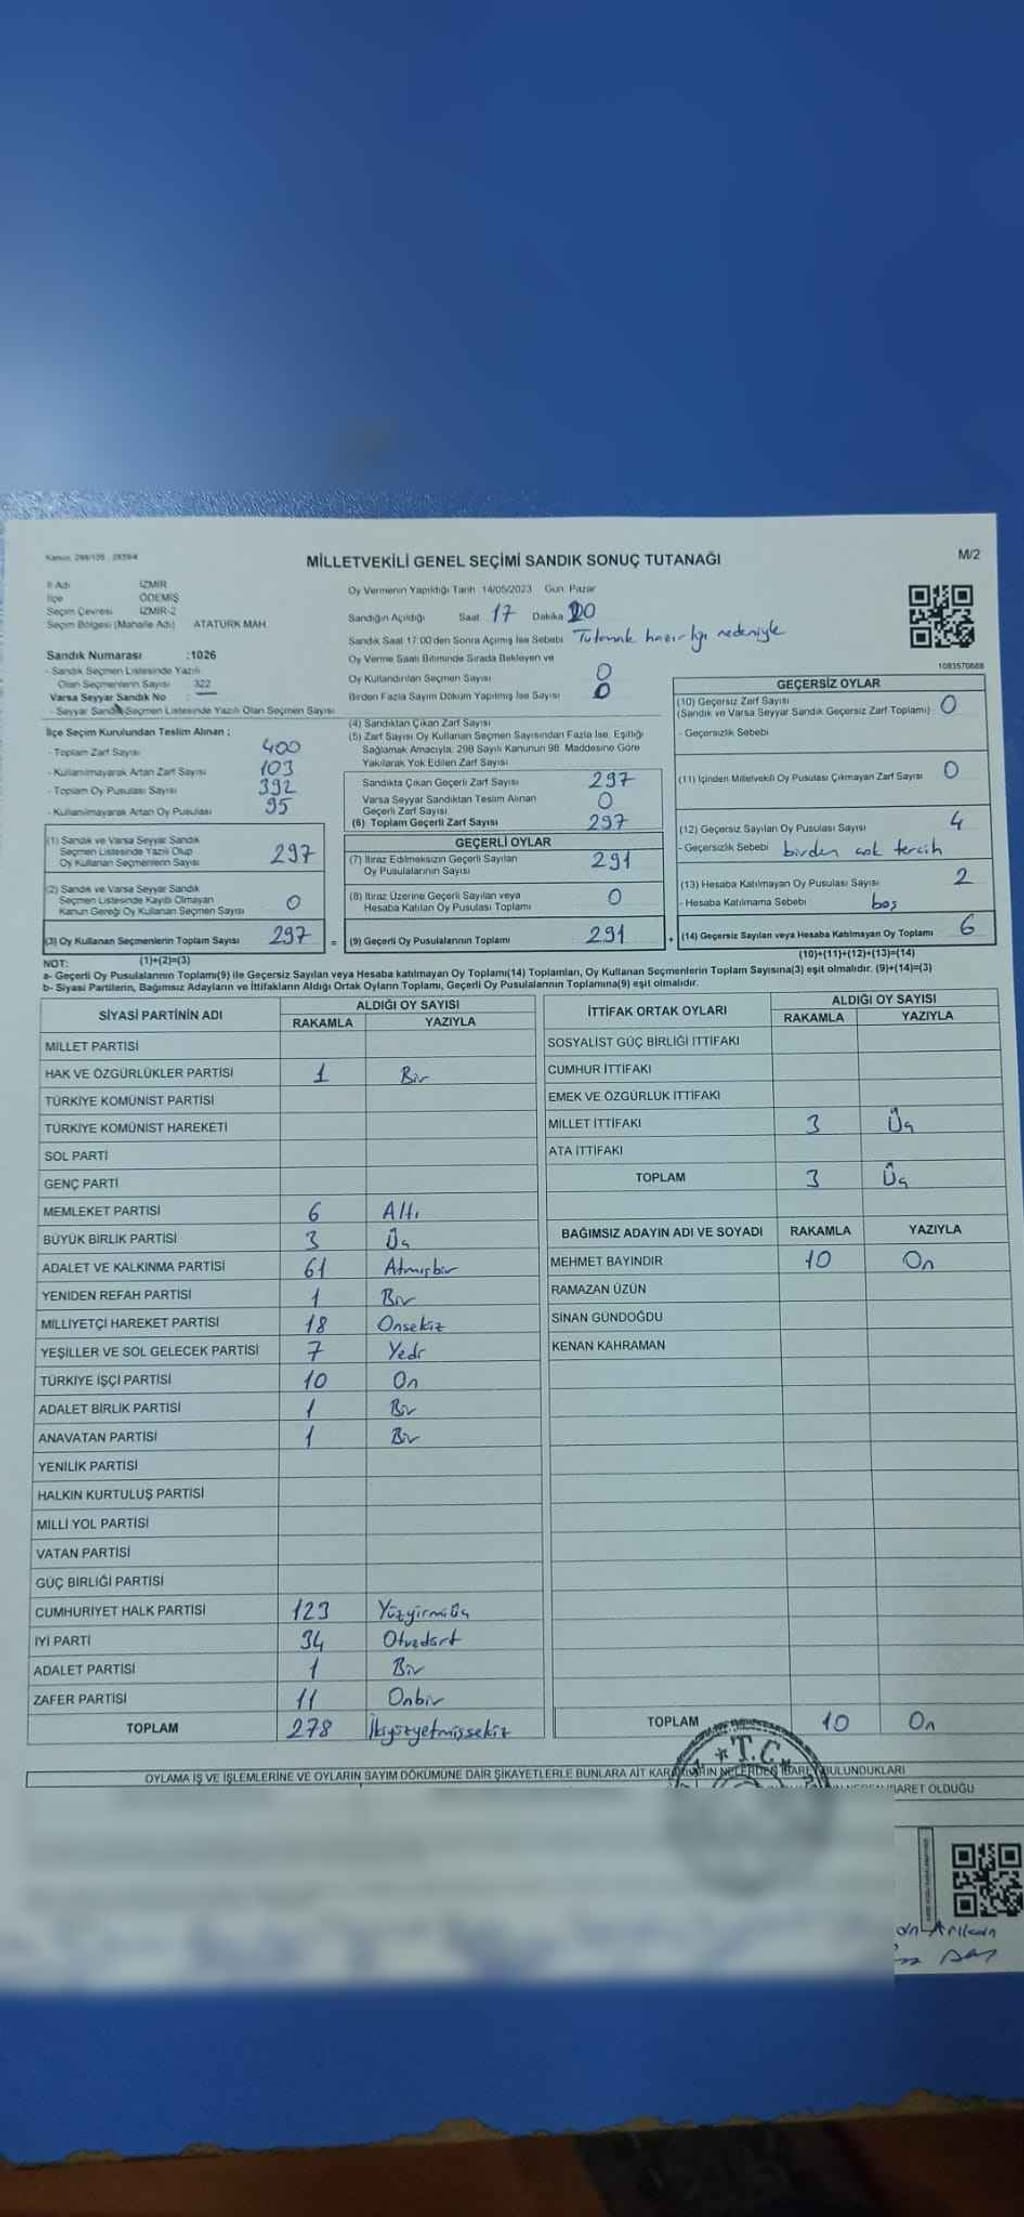 MİLLETVEKİLİ GENEL SEÇİMİ SANDIK SONUÇ TUTANAĞI
M/2
İl Adı İZMİR
İlçe ÖDEMİŞ
Seçim Çevresi İZMİR-2
Seçim Bölgesi (Mahalle Adı) ATATÜRK MAH.
Sandık Numarası :1026
- Sandık Seçmen Listesinde Yazılı
Olan Seçmenlerin Sayısı 322
Varsa Seyyar Sandık No :
- Seyyar Sandık Seçmen Listesinde Yazılı Olan Seçmen Sayısı
Oy Vermenin Yapıldığı Tarih 14/05/2023 Gün Pazar
Sandığın Açıldığı Saat 17 Dakika 20
Sandık Saat 17:00'den Sonra Açılmış İse Sebebi Tutanak hazırlığı nedeniyle
Oy Verme Saati Bitiminde Sırada Bekleyen ve
Oy Kullandırılan Seçmen Sayısı 0
Birden Fazla Sayım Döküm Yapılmış İse Sayısı 0
1083570688
İlçe Seçim Kurulundan Teslim Alınan ;
- Toplam Zarf Sayısı 400
- Kullanılmayarak Artan Zarf Sayısı 103
- Toplam Oy Pusulası Sayısı 392
- Kullanılmayarak Artan Oy Pusulası 95
(1) Sandık ve Varsa Seyyar Sandık
Seçmen Listesinde Yazılı Olup
Oy Kullanan Seçmenlerin Sayısı 297
(2) Sandık ve Varsa Seyyar Sandık
Seçmen Listesinde Kayıtlı Olmayan
Kanun Gereği Oy Kullanan Seçmen Sayısı 0
(3) Oy Kullanan Seçmenlerin Toplam Sayısı 297 =
(1)+(2)=(3)
(4) Sandıktan Çıkan Zarf Sayısı
(5) Zarf Sayısı Oy Kullanan Seçmen Sayısından Fazla İse, Eşitliği
Sağlamak Amacıyla, 298 Sayılı Kanunun 98. Maddesine Göre
Yakılarak Yok Edilen Zarf Sayısı
Sandıkta Çıkan Geçerli Zarf Sayısı 297
Varsa Seyyar Sandıktan Teslim Alınan
Geçerli Zarf Sayısı 0
(6) Toplam Geçerli Zarf Sayısı 297
GEÇERLİ OYLAR
(7) İtiraz Edilmeksizin Geçerli Sayılan
Oy Pusulalarının Sayısı 291
(8) İtiraz Üzerine Geçerli Sayılan veya
Hesaba Katılan Oy Pusulası Toplamı 0
(9) Geçerli Oy Pusulalarının Toplamı 291 +
GEÇERSİZ OYLAR
(10) Geçersiz Zarf Sayısı
(Sandık ve Varsa Seyyar Sandık Geçersiz Zarf Toplamı) 0
- Geçersizlik Sebebi
(11) İçinden Milletvekili Oy Pusulası Çıkmayan Zarf Sayısı 0
(12) Geçersiz Sayılan Oy Pusulası Sayısı 4
- Geçersizlik Sebebi birden çok tercih
(13) Hesaba Katılmayan Oy Pusulası Sayısı 2
- Hesaba Katılmama Sebebi boş
(14) Geçersiz Sayılan veya Hesaba Katılmayan Oy Toplamı 6
(10)+(11)+(12)+(13)=(14)
NOT:
a- Geçerli Oy Pusulalarının Toplamı(9) ile Geçersiz Sayılan veya Hesaba katılmayan Oy Toplamı(14) Toplamları, Oy Kullanan Seçmenlerin Toplam Sayısına(3) eşit olmalıdır. (9)+(14)=(3)
b- Siyasi Partilerin, Bağımsız Adayların ve İttifakların Aldığı Ortak Oyların Toplamı, Geçerli Oy Pusulalarının Toplamına(9) eşit olmalıdır.
SİYASİ PARTİNİN ADI ALDIĞI OY SAYISI
RAKAMLA YAZIYLA
MİLLET PARTİSİ
HAK VE ÖZGÜRLÜKLER PARTİSİ 1 Bir
TÜRKİYE KOMÜNİST PARTİSİ
TÜRKİYE KOMÜNİST HAREKETİ
SOL PARTİ
GENÇ PARTİ
MEMLEKET PARTİSİ 6 Altı
BÜYÜK BİRLİK PARTİSİ 3 Üç
ADALET VE KALKINMA PARTİSİ 61 Atmışbir
YENİDEN REFAH PARTİSİ 1 Bir
MİLLİYETÇİ HAREKET PARTİSİ 18 Onsekiz
YEŞİLLER VE SOL GELECEK PARTİSİ 7 Yedi
TÜRKİYE İŞÇİ PARTİSİ 10 On
ADALET BİRLİK PARTİSİ 1 Bir
ANAVATAN PARTİSİ 1 Bir
YENİLİK PARTİSİ
HALKIN KURTULUŞ PARTİSİ
MİLLİ YOL PARTİSİ
VATAN PARTİSİ
GÜÇ BİRLİĞİ PARTİSİ
CUMHURİYET HALK PARTİSİ 123 Yüzyirmiüç
İYİ PARTİ 34 Otuzdört
ADALET PARTİSİ 1 Bir
ZAFER PARTİSİ 11 Onbir
TOPLAM 278 İkiyüzyetmişsekiz
İTTİFAK ORTAK OYLARI ALDIĞI OY SAYISI
RAKAMLA YAZIYLA
SOSYALİST GÜÇ BİRLİĞİ İTTİFAKI
CUMHUR İTTİFAKI
EMEK VE ÖZGÜRLÜK İTTİFAKI
MİLLET İTTİFAKI 3 Üç
ATA İTTİFAKI
TOPLAM 3 Üç
BAĞIMSIZ ADAYIN ADI VE SOYADI RAKAMLA YAZIYLA
MEHMET BAYINDIR 10 On
RAMAZAN ÜZÜN
SİNAN GÜNDOĞDU
KENAN KAHRAMAN
TOPLAM 10 On
T.C.
OYLAMA İŞ VE İŞLEMLERİNE VE OYLARIN SAYIM DÖKÜMÜNE DAİR ŞİKAYETLERLE BUNLARA AİT KARARLARIN NELERDEN İBARET BULUNDUKLARI
İBARET OLDUĞU